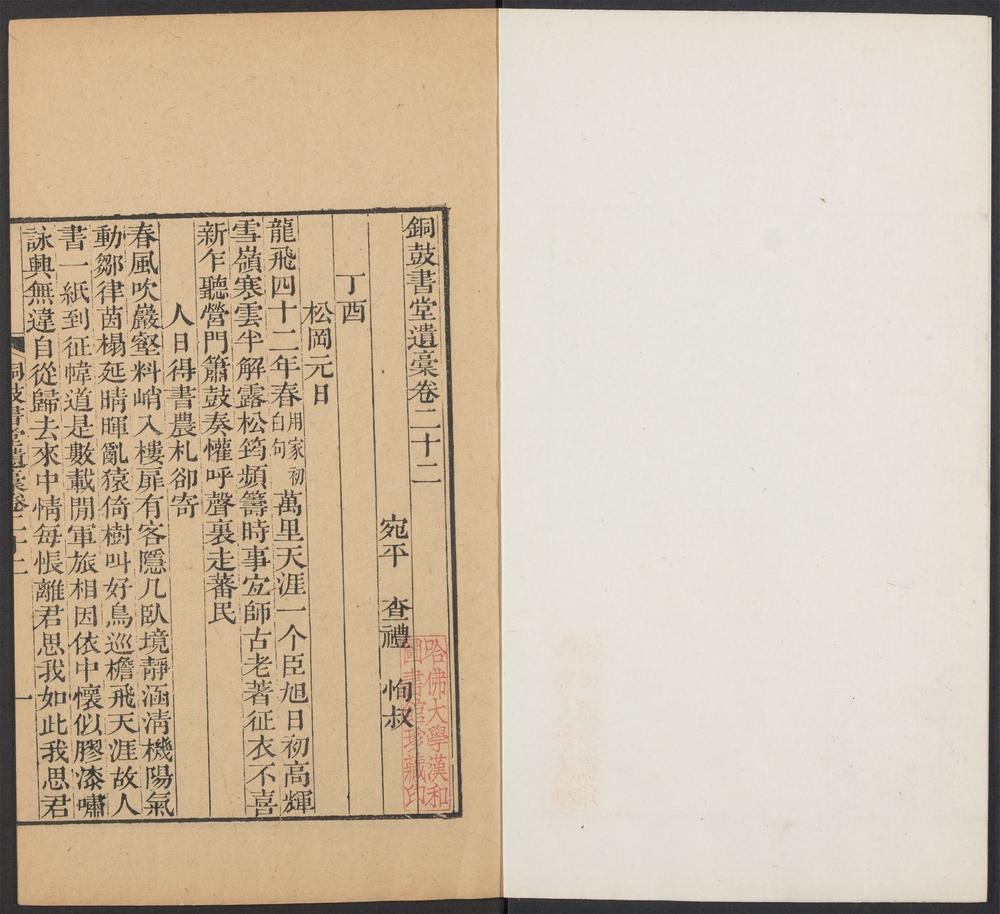 銅鼓書堂遺稾卷二十二
宛平 查禮 恂叔
丁酉
松岡元日
龍飛四十二年春用家初白句萬里天涯一个臣旭日初高輝
雪嶺寒雲半解露松筠頻籌時事宐師古老著征衣不喜
新乍聽營門簫鼓奏懽呼聲裏走蕃民
人日得書農札卻寄
春風吹巖壑料峭入樓扉有客隱几臥境靜涵淸機陽氣
動鄒律茵榻延晴暉亂猿倚樹叫好鳥巡檐飛天涯故人
書一紙到征幃道是數載閒軍旅相因依中懷似膠漆嘯
詠興無違自從歸去來中情每悵離君思我如此我思君
銅鼓書堂遺稾卷二十二
一
哈佛大學漢和
圖書館珍藏印